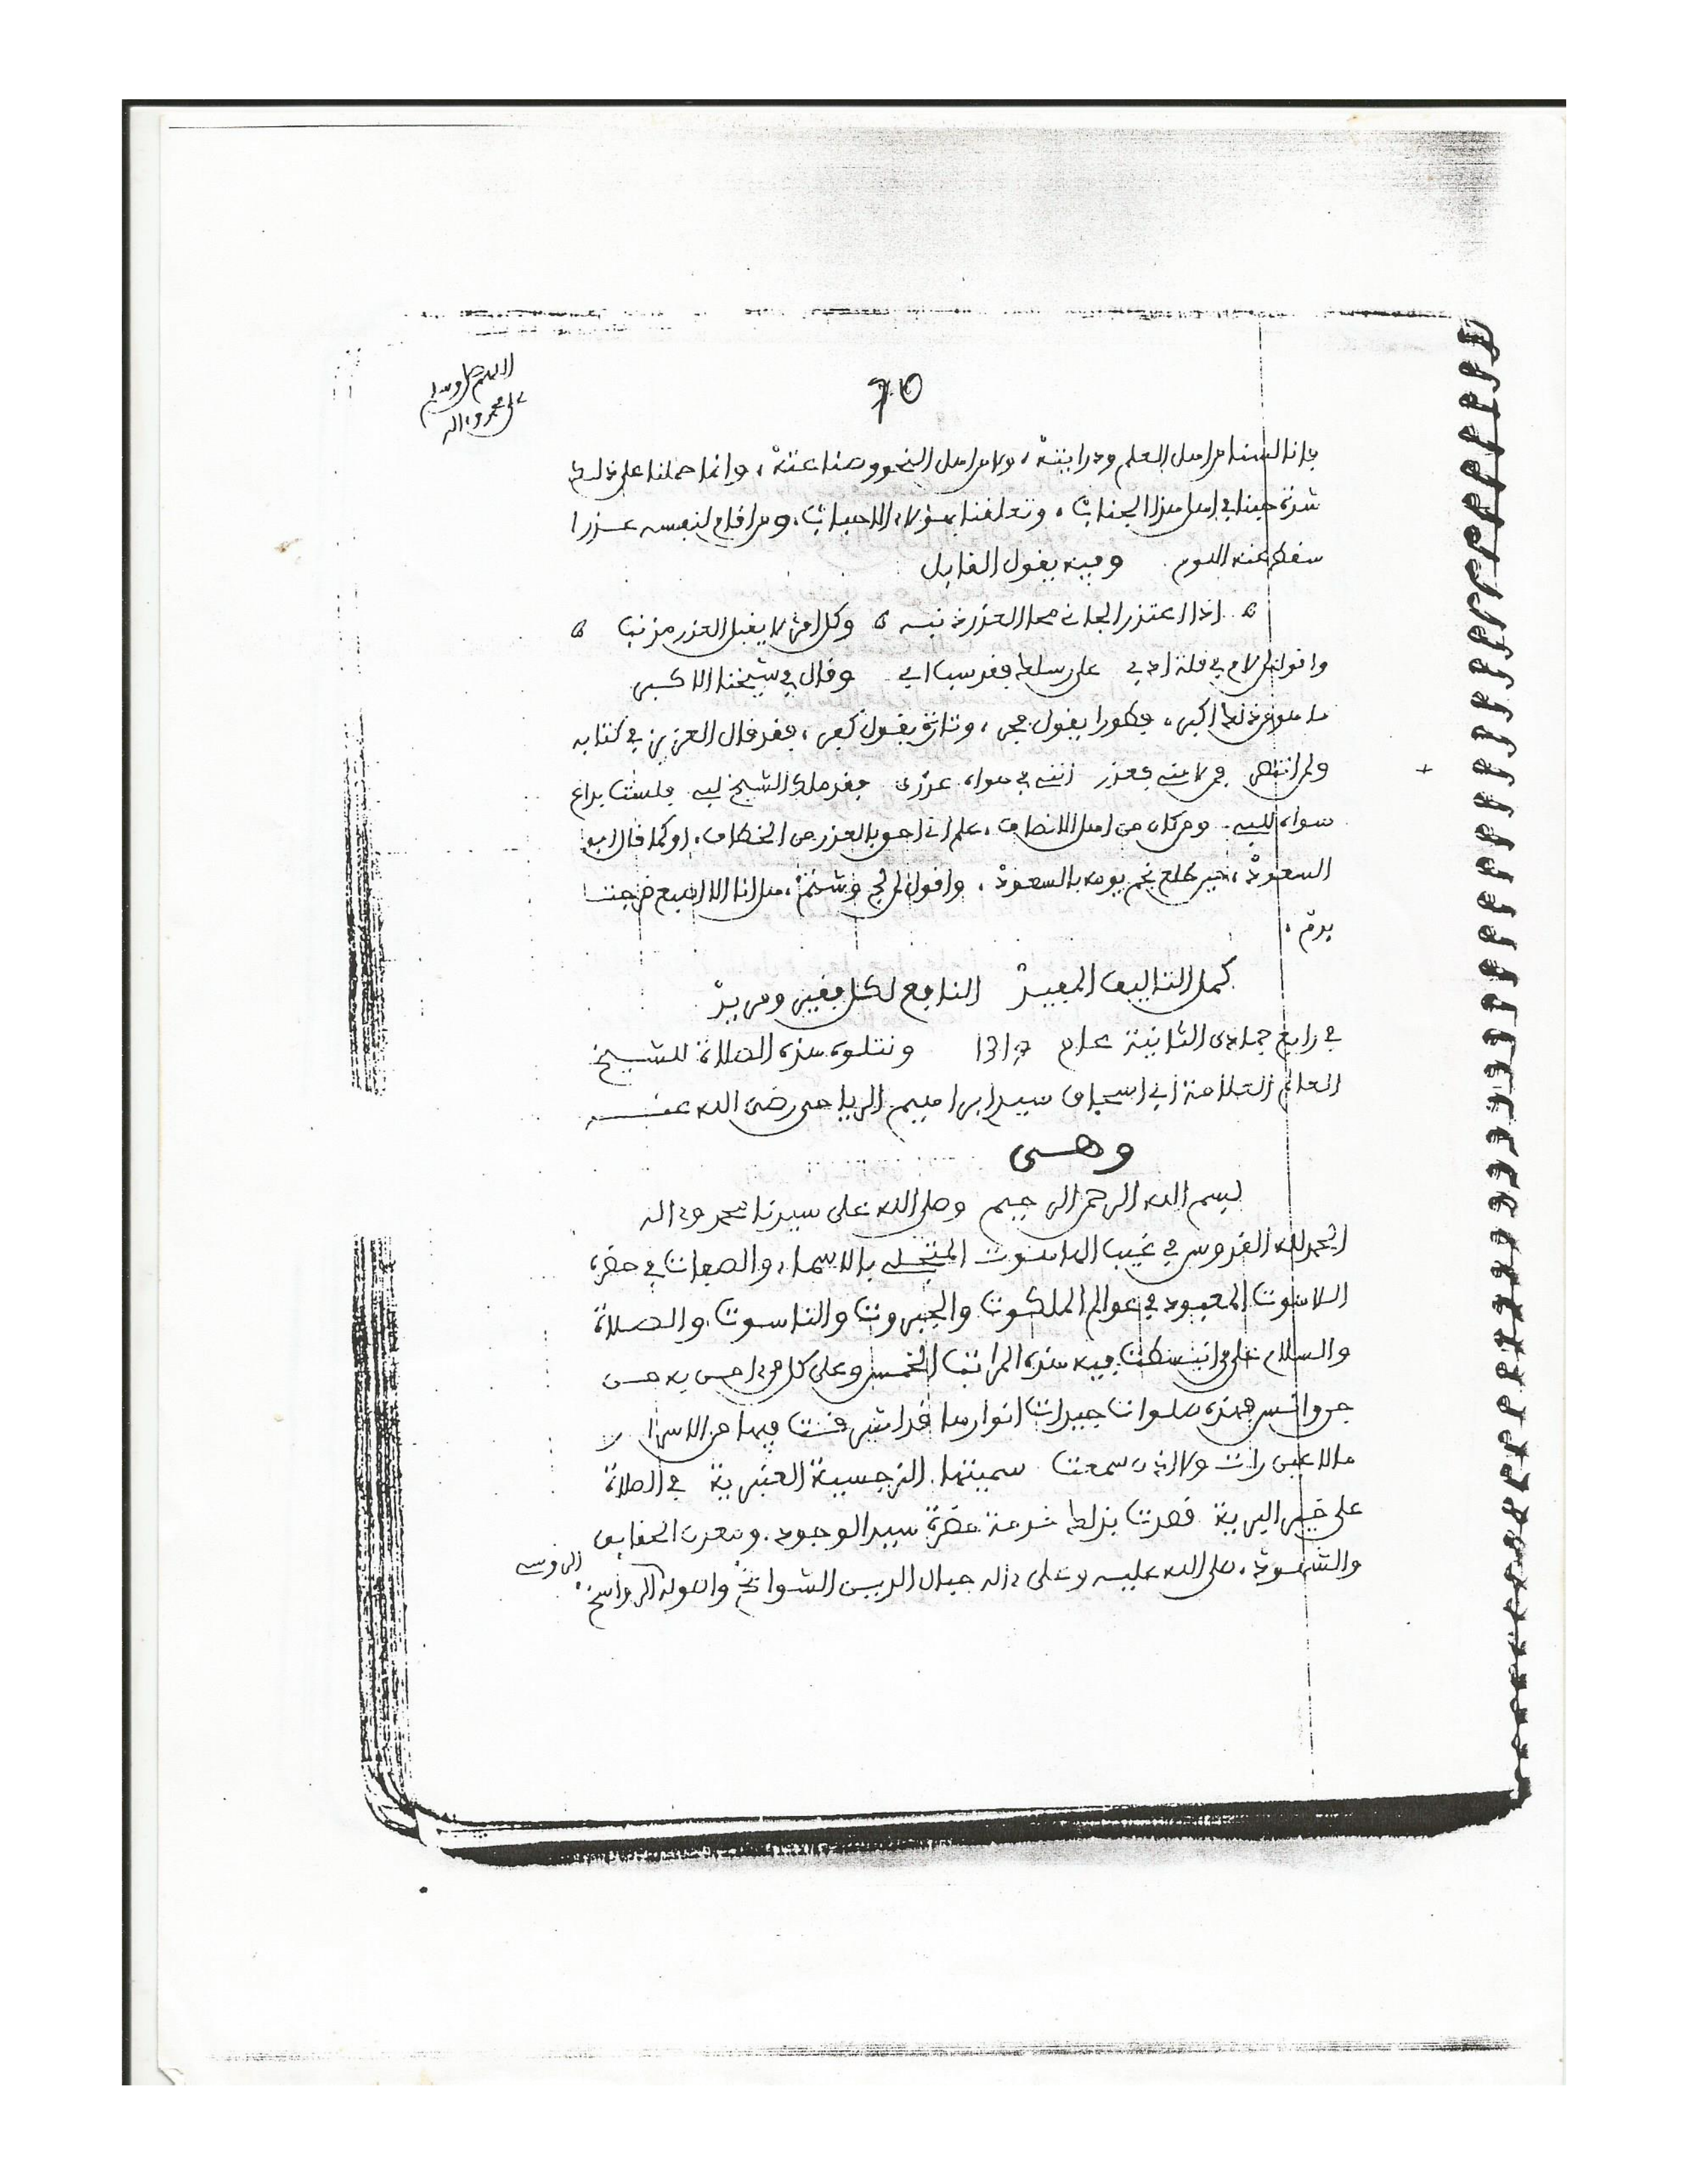 اللهم صل وسلم
على محمد وءاله
70
فإنا لسنا من اهل العلم ودرايته، ولا من اهل النحو وصناعته، وإنما حملنا على ذلك
شدة حبنا في اهل هذا الجناب، وتعلقنا بهؤلاء الاحباب، ومن اقام لنفسه عذرا
سقط عنه اللوم وفيه يقول القايل
اذا اعتذر الجاني محا العذر ذنبه وكل امرئ لا يقبل العذر مذنب
واقول لمن لام في قلة ادبي على رسلك فقد سبا ابي وقال في شيخنا الاكبر
ما هو من ذلك اكبر، فطورا يقول فجر، وتارة يقول كفر، فقد قال العزيز في كتابه
ولم انتهى فمن لامني فعذر انني في هواه عذرى فقد ملك الشيخ لبي فلست براع
سواه للبيه ومن كان من اهل الانصاف، علم اني احق بالعذر من الخطاف، او كما قال ابو
السعود، حين طلع نجم يومه بالسعود، واقول لمن لج وشتم، هل انا الا اصبع خرجت
بدم،
كمل التاليف المفيد النافع لكل فقير ومريد
في رابع جمادى الثانية عام 1317 ونتلوه هذه الصلاة للشيخ
العالم العلامة ابي اسحاق سيد ابراهيم الرياحي رضى الله عنه
وهى
بسم الله الرحمن الرحيم وصلى الله على سيدنا محمد وءاله
الحمد لله القدوس في غيب الهاهوت المتجلي بالاسماء والصفات في حضرة
اللاهوت المعبود في عوالم الملكوت والجبروت والناسوت والصلاة
والسلام على من انبسطت فيه هذه المراتب الخمس وعلى كل من ءامن به من
جن وانس فهذه صلوات جيدات انوارها قد اشرقت فيها من الاسرار
ما لا عين رات ولا اذن سمعت سميتها النرجسية العنبرية في الصلاة
على خير البرية قصدت بذلك خدمة حضرة سيد الوجود ومعدن الحقايق
والشهود، صلى الله عليه وعلى ءاله جبال الدين الشوامخ واصوله الرواسخ،